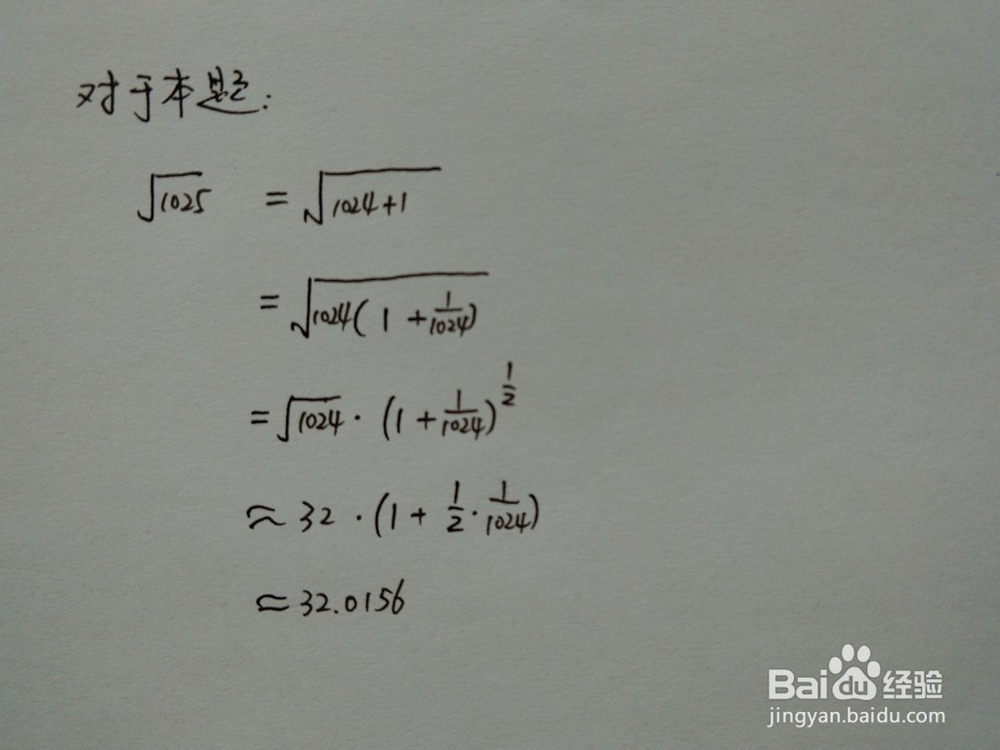 对于本题:
√1025 = √(1024+1)
= √(1024(1+1/1024))
= √1024 · (1+1/1024)^(1/2)
≈ 32 · (1+1/2·1/1024)
≈ 32.0156
Baidu经验
jingyan.baidu.com